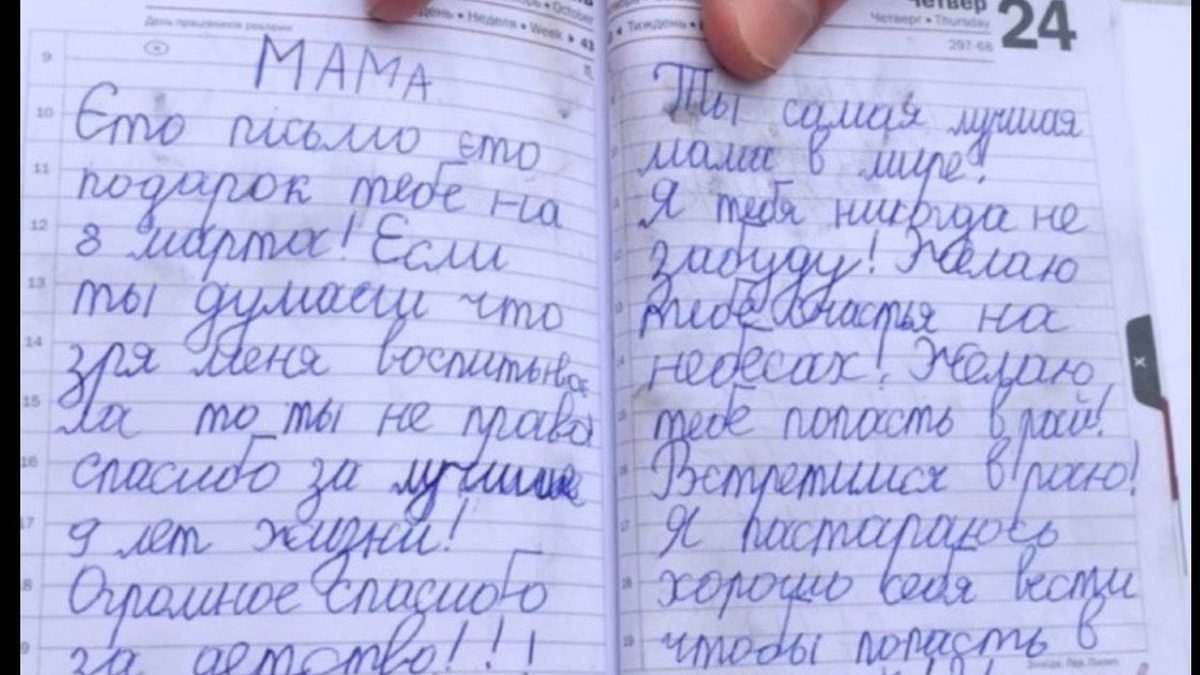 октябрь • October
День • Неделя • Week ▸ 43
День працівника реклами
МАМА
Єто письмо єто
подарок тебе на
8 марта! Если
ты думаеш что
зря меня воспитыва
ла то ты не права
спасибо за лучшие
9 лет жизни!
Огромное спасибо
за детство!!!
• Тиждень •
Четвер
Четверг • Thursday
297-68
24
Ты самая лучшая
мама в мире!
Я тебя никогда не
забуду! Желаю
тебе счастья на
небесах! Желаю
тебе попасть в рай!
Встретимся в раю!
Я пастараюсь
хорошо себя вести
чтобы попасть в
9
10
11
12
13
14
15
16
17
18
19